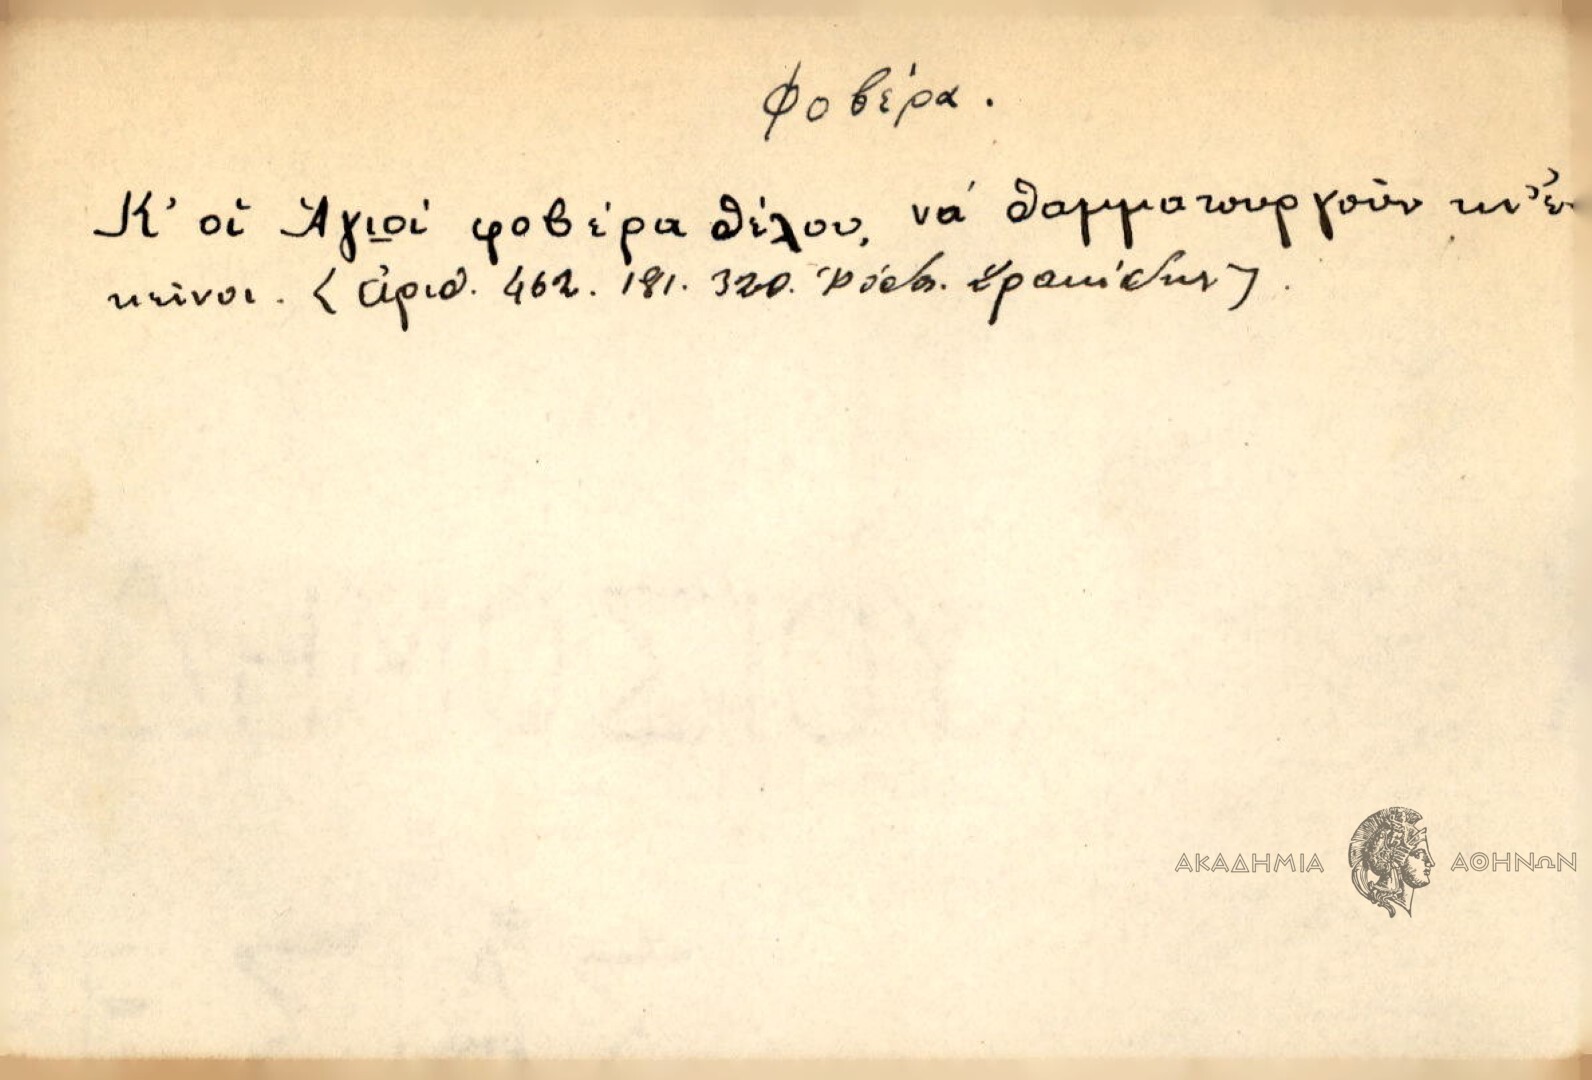 Φοβέρα.
Κ' οἱ Ἅγιοι φοβέρα θέλου, νά θαμματουργοῦν κι' ἐ-
κεῖνοι. (ἀριθ. 462. 181. 320.
ΑΚΑΔΗΜΙΑ ΑΘΗΝΩΝ